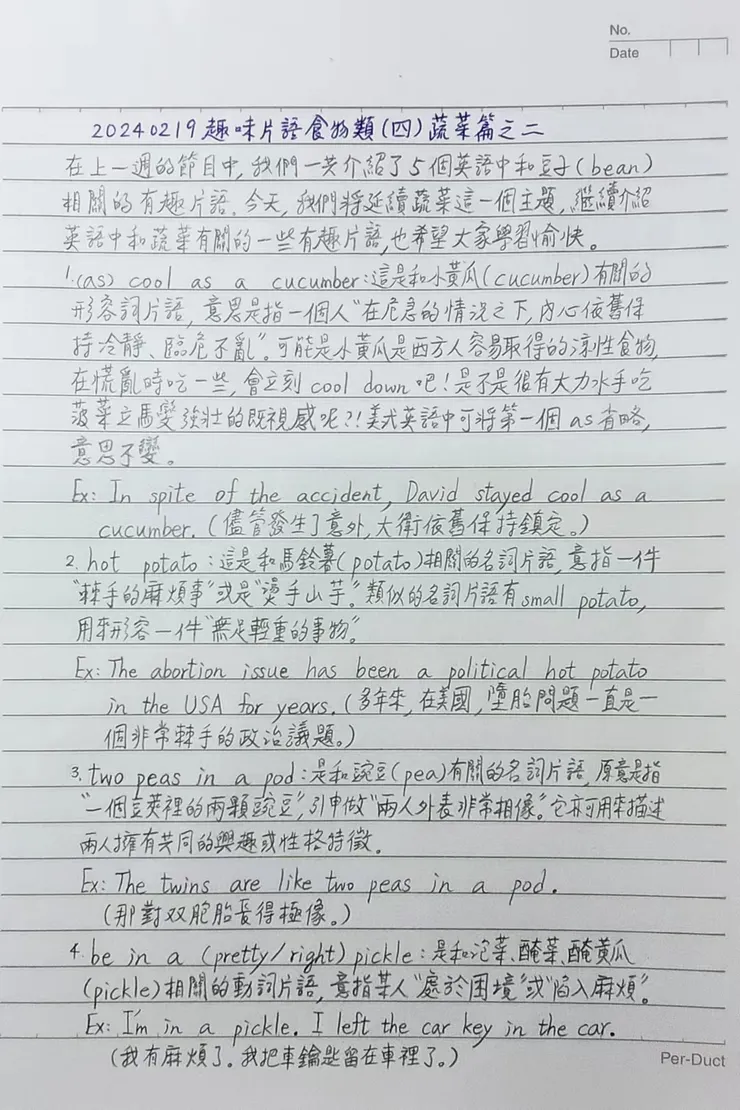 No.
Date
20240219趣味片語食物類(四)蔬菜篇之二
在上一週的節目中,我們一共介紹了5個英語中和豆子(bean)
相關的有趣片語.今天,我們將延續蔬菜這一個主題,繼續介紹
英語中和蔬菜有關的一些有趣片語,也希望大家學習愉快。
1.(as) cool as a cucumber:這是和小黃瓜(cucumber)有關的
形容詞片語,意思是指一個人"在危急的情況之下,內心依舊保
持冷靜、臨危不亂"。可能是小黃瓜是西方人容易取得的涼性食物,
在慌亂時吃一些,會立刻cool down吧!是不是很有大力水手吃
菠菜立馬變強壯的既視感呢?!美式英語中可將第一個as省略,
意思不變。
Ex: In spite of the accident, David stayed cool as a
cucumber.(儘管發生了意外,大衛依舊保持鎮定。)
2. hot potato:這是和馬鈴薯(potato)相關的名詞片語,意指一件
"棘手的麻煩事"或是"燙手山芋"。類似的名詞片語有small potato,
用來形容一件"無足輕重的事物"。
Ex: The abortion issue has been a political hot potato
in the USA for years.(多年來,在美國,墮胎問題一直是一
個非常棘手的政治議題。)
3. two peas in a pod:是和豌豆(pea)有關的名詞片語,原意是指
"一個豆莢裡的兩顆豌豆",引申做"兩人外表非常相像"。它亦可用來描述
兩人擁有共同的興趣或性格特徵。
Ex: The twins are like two peas in a pod.
(那對双胞胎長得極像。)
4. be in a (pretty/right) pickle:是和泡菜、醃菜、醃黃瓜
(pickle)相關的動詞片語,意指某人"處於困境"或"陷入麻煩"。
Ex: I'm in a pickle. I left the car key in the car.
(我有麻煩了。我把車鑰匙留在車裡了。)
Per-Duct